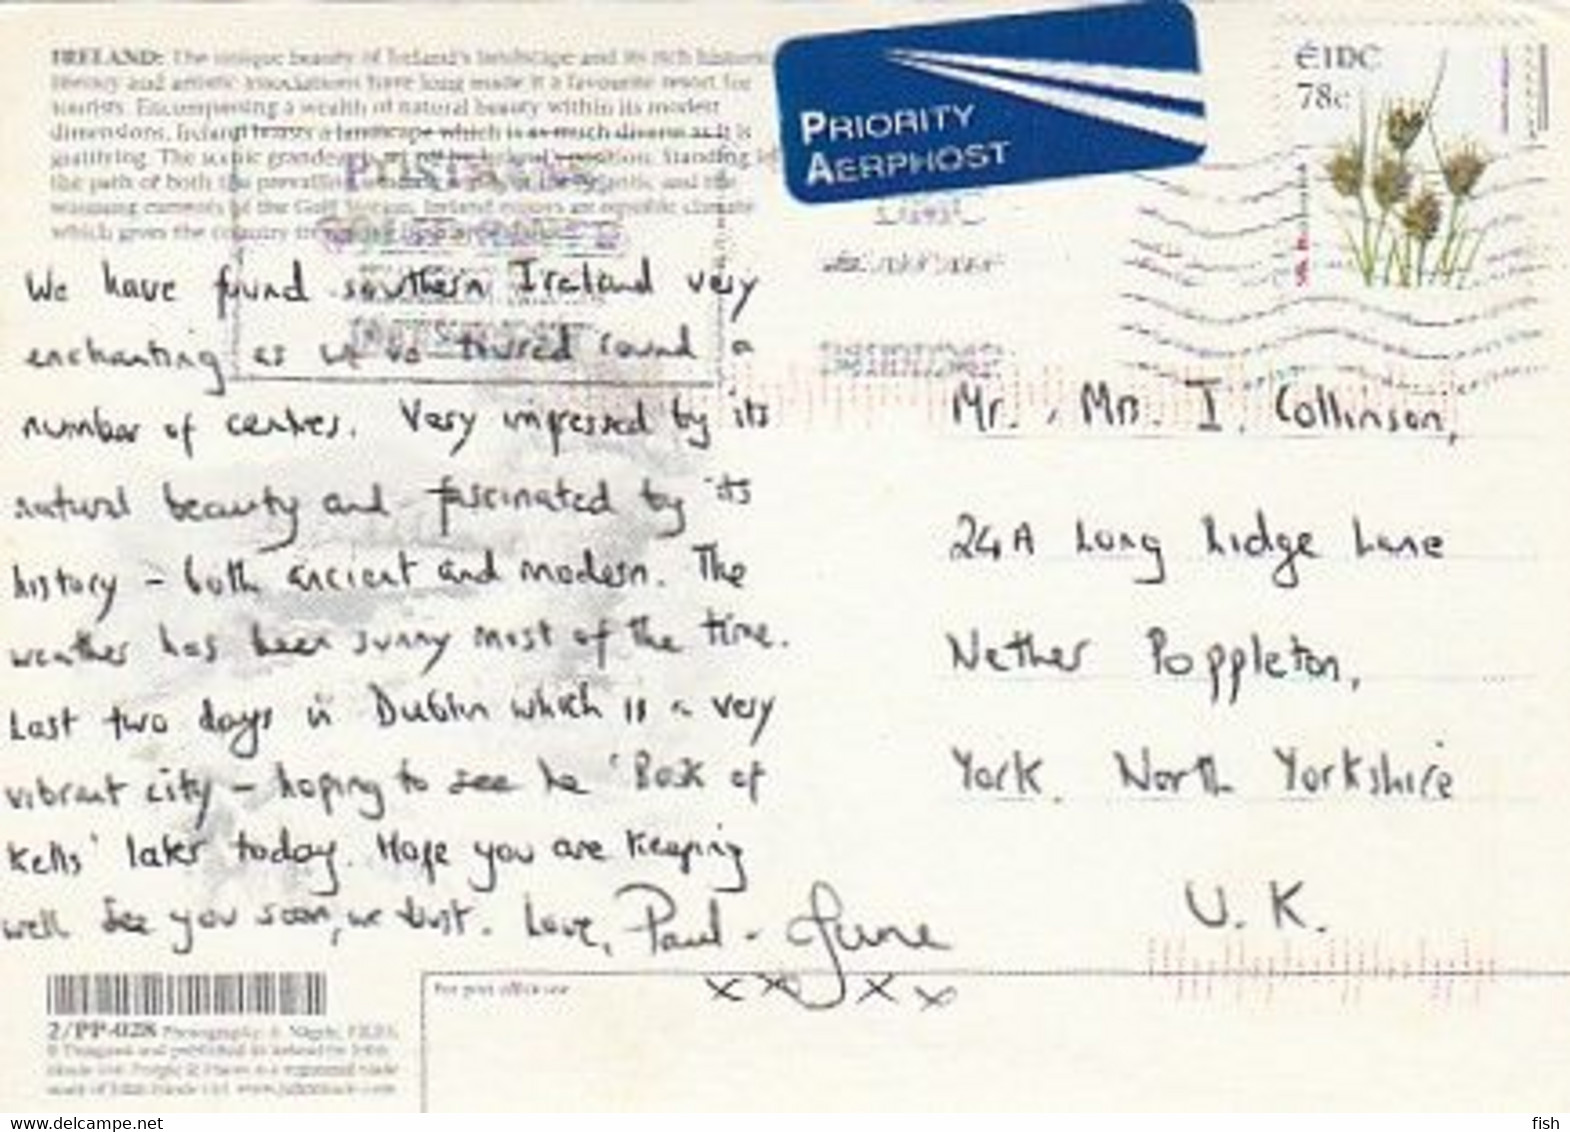 IRELAND: The unique beauty of Ireland's landscape and its rich historic
literary and artistic associations have long made it a favourite resort for
tourists. Encompassing a wealth of natural beauty within its modest
dimensions, Ireland boasts a landscape which is as much diverse as it is
gratifying. The scenic grandeur is set off by Ireland's position. Standing
the path of both the prevailing and the
warming currents of the Gulf Stream, Ireland enjoys an equable climate
which gives the country
PRIORITY
AERPHOST
ÉIRE
78c
We have found southern Ireland very
enchanting as we've toured round a
number of centres. Very impressed by its
natural beauty and fascinated by its
history - both ancient and modern. The
weather has been sunny most of the time.
Last two days in Dublin which is a very
vibrant city - hoping to see he 'Book of
Kells' later today. Hope you are keeping
well See you soon, we trust. Love, Paul - June
x x x x
Mr. , Mrs. I. Collinson,
24A Long Ridge Lane
Nether Poppleton,
York. North Yorkshire
U.K.
For post office use
2/PP-028 Photography:
www.delcampe.net
fish